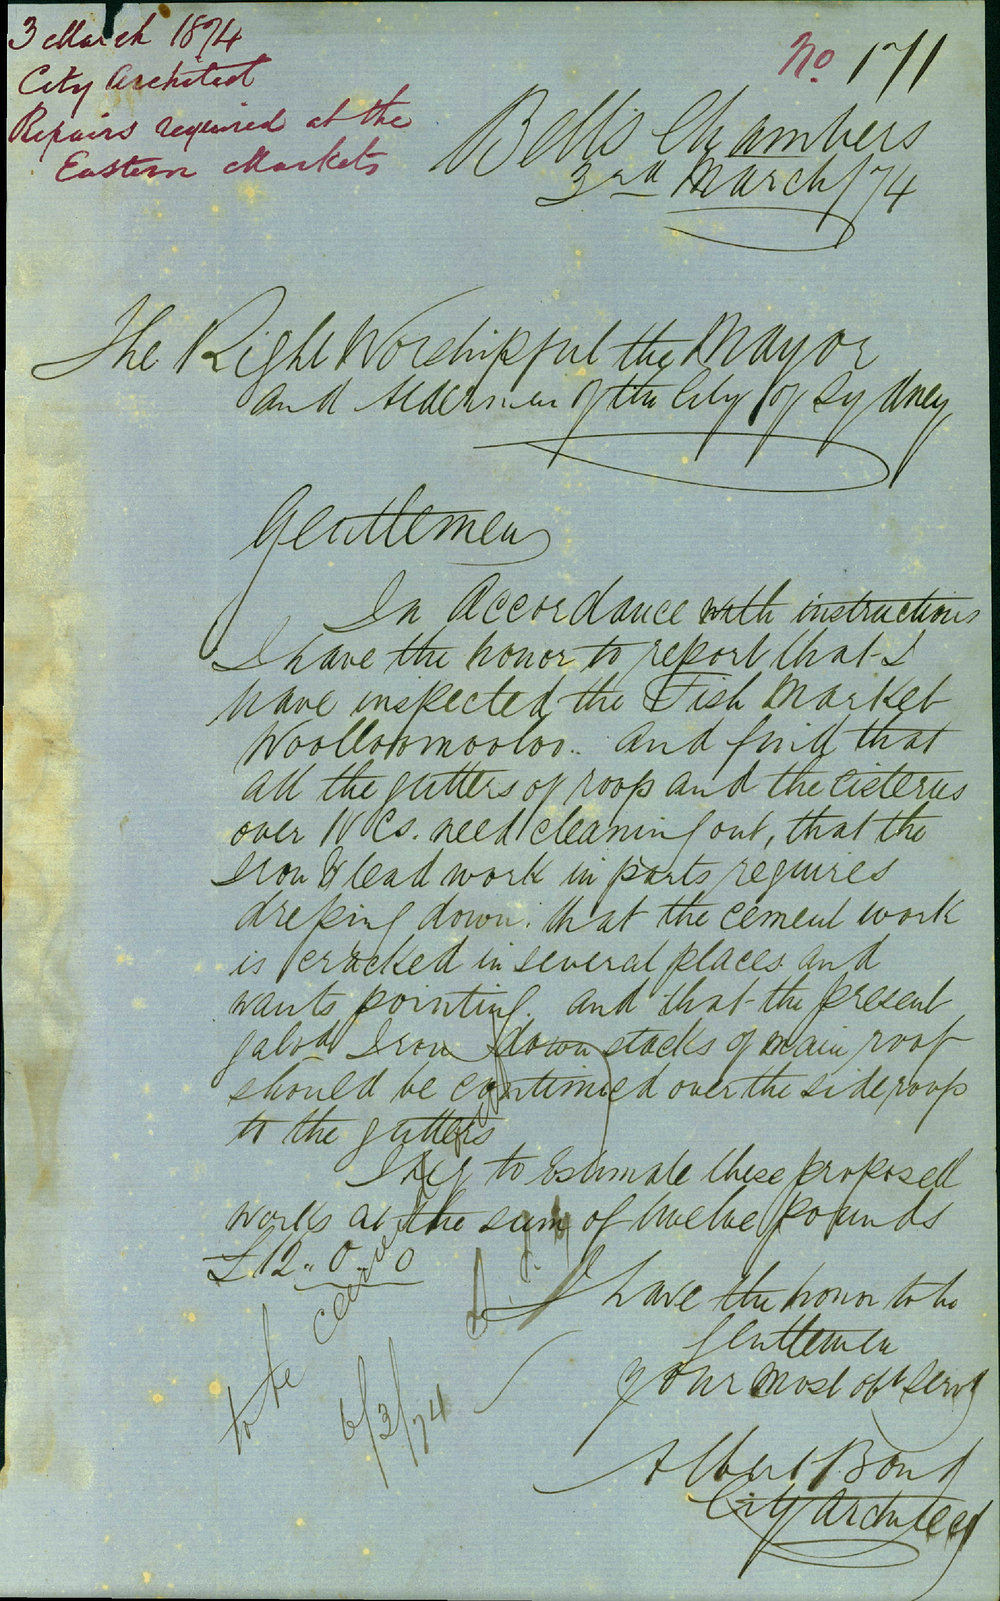 3 March 1874
City Architect
Repairs required at the
Eastern Markets
No. 171
Bell's Chambers
3rd March /74
The Right Worshipful the Mayor
and Aldermen of the City of Sydney
Gentlemen
In Accordance with instructions
I have the honor to report that I
have inspected the Fish Market
Woolloomooloo.. and find that
all the gutters of roofs and the cisterns
over W Cs. need cleaning out, that the
Iron & lead work in parts requires
dressing down. that the cement work
is cracked in several places and
wants pointing. and that the present
galvd Iron down stacks of main roof
should be continued over the side roofs
to the gutters
I beg to Estimate these proposed
works at the sum of twelve pounds
£12..0..0
I have the honor to be
Gentlemen
your most obt Servt
Albert Bond
City Architect
to be carried
6/3/74